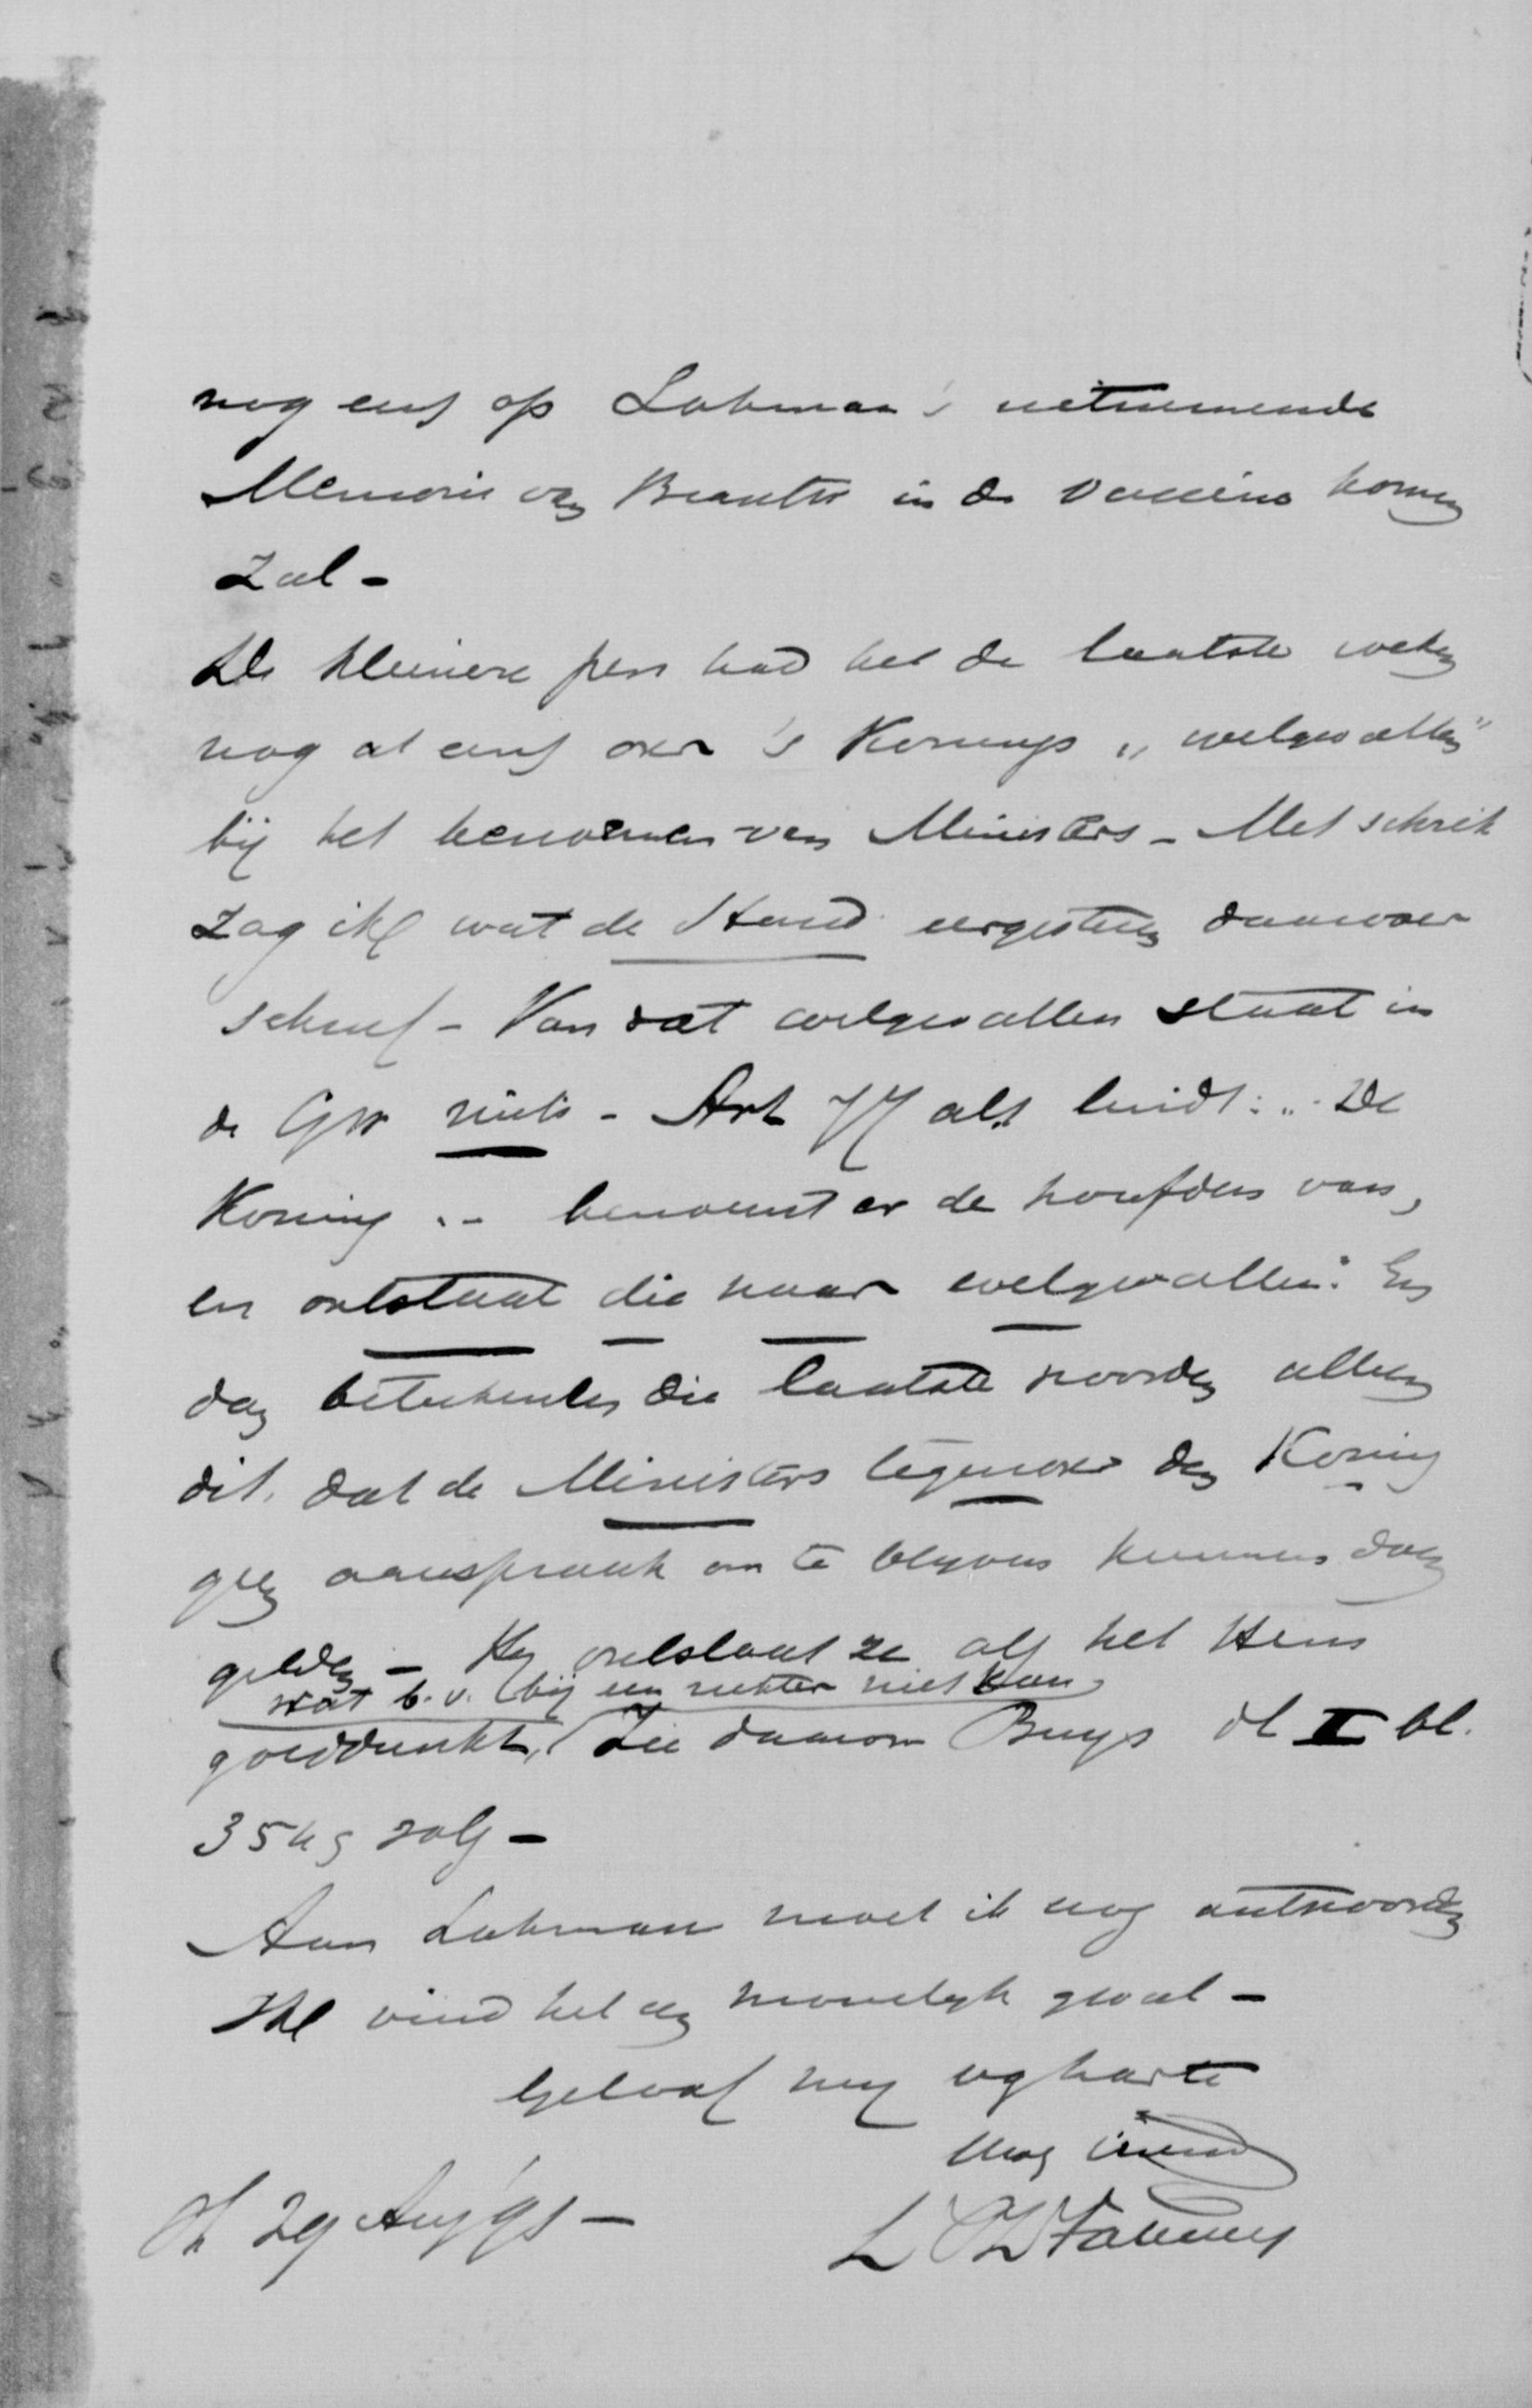 nog eens op Lohman's uitnemende
Memorie van Beantw in de vaccine komen
zal -
De kleinere pers had het de laatste weken
nog al eens over 's Konings „welgevallen"
bij het benoemen van Ministers - Met schrik
zag ik wat de Stand eergisteren daarover
schreef - Van dat welgevallen staat in
de Gw niets - Art 77 al. 1 luidt: „De
Koning .. benoemt er de hoofden van,
en ontslaat die naar welgevallen." En
dan beteekenen die laatste woorden alleen
dit, dat de Ministers tegenover den Koning
geen aanspraak om te blijven kunnen doen
gelden - Hij ontslaat ze als het Hem
wat b.v. bij een rechter niet kan
goeddunkt, Zie daarover Buys dl II bl.
354 volg -
Aan Lohman moet ik nog antwoorden
Ik vind het een moeielijk geval -
Geloof mij v harte
Uw vriend
29 Aug '98 -
L W